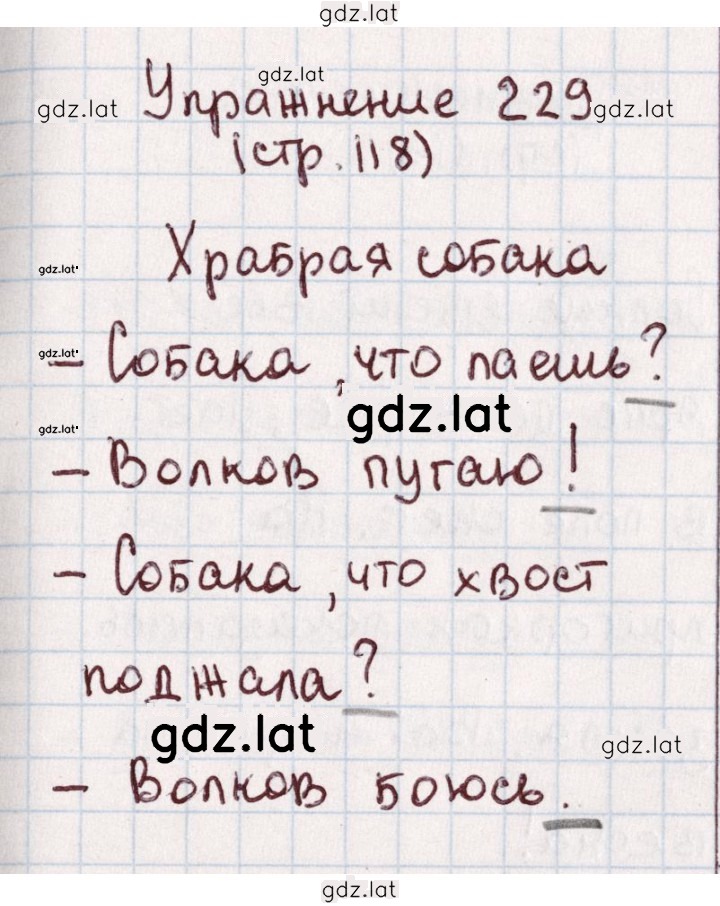 gdz.lat
gdz.lat
gdz.lat Упражнение 229 gdz.lat
(стр. 118)
gdz.lat Храбрая собака
gdz.lat
– Собака, что лаешь?
gdz.lat
gdz.lat
– Волков пугаю!
– Собака, что хвост
поджала?
gdz.lat gdz.lat
– Волков боюсь.
gdz.lat